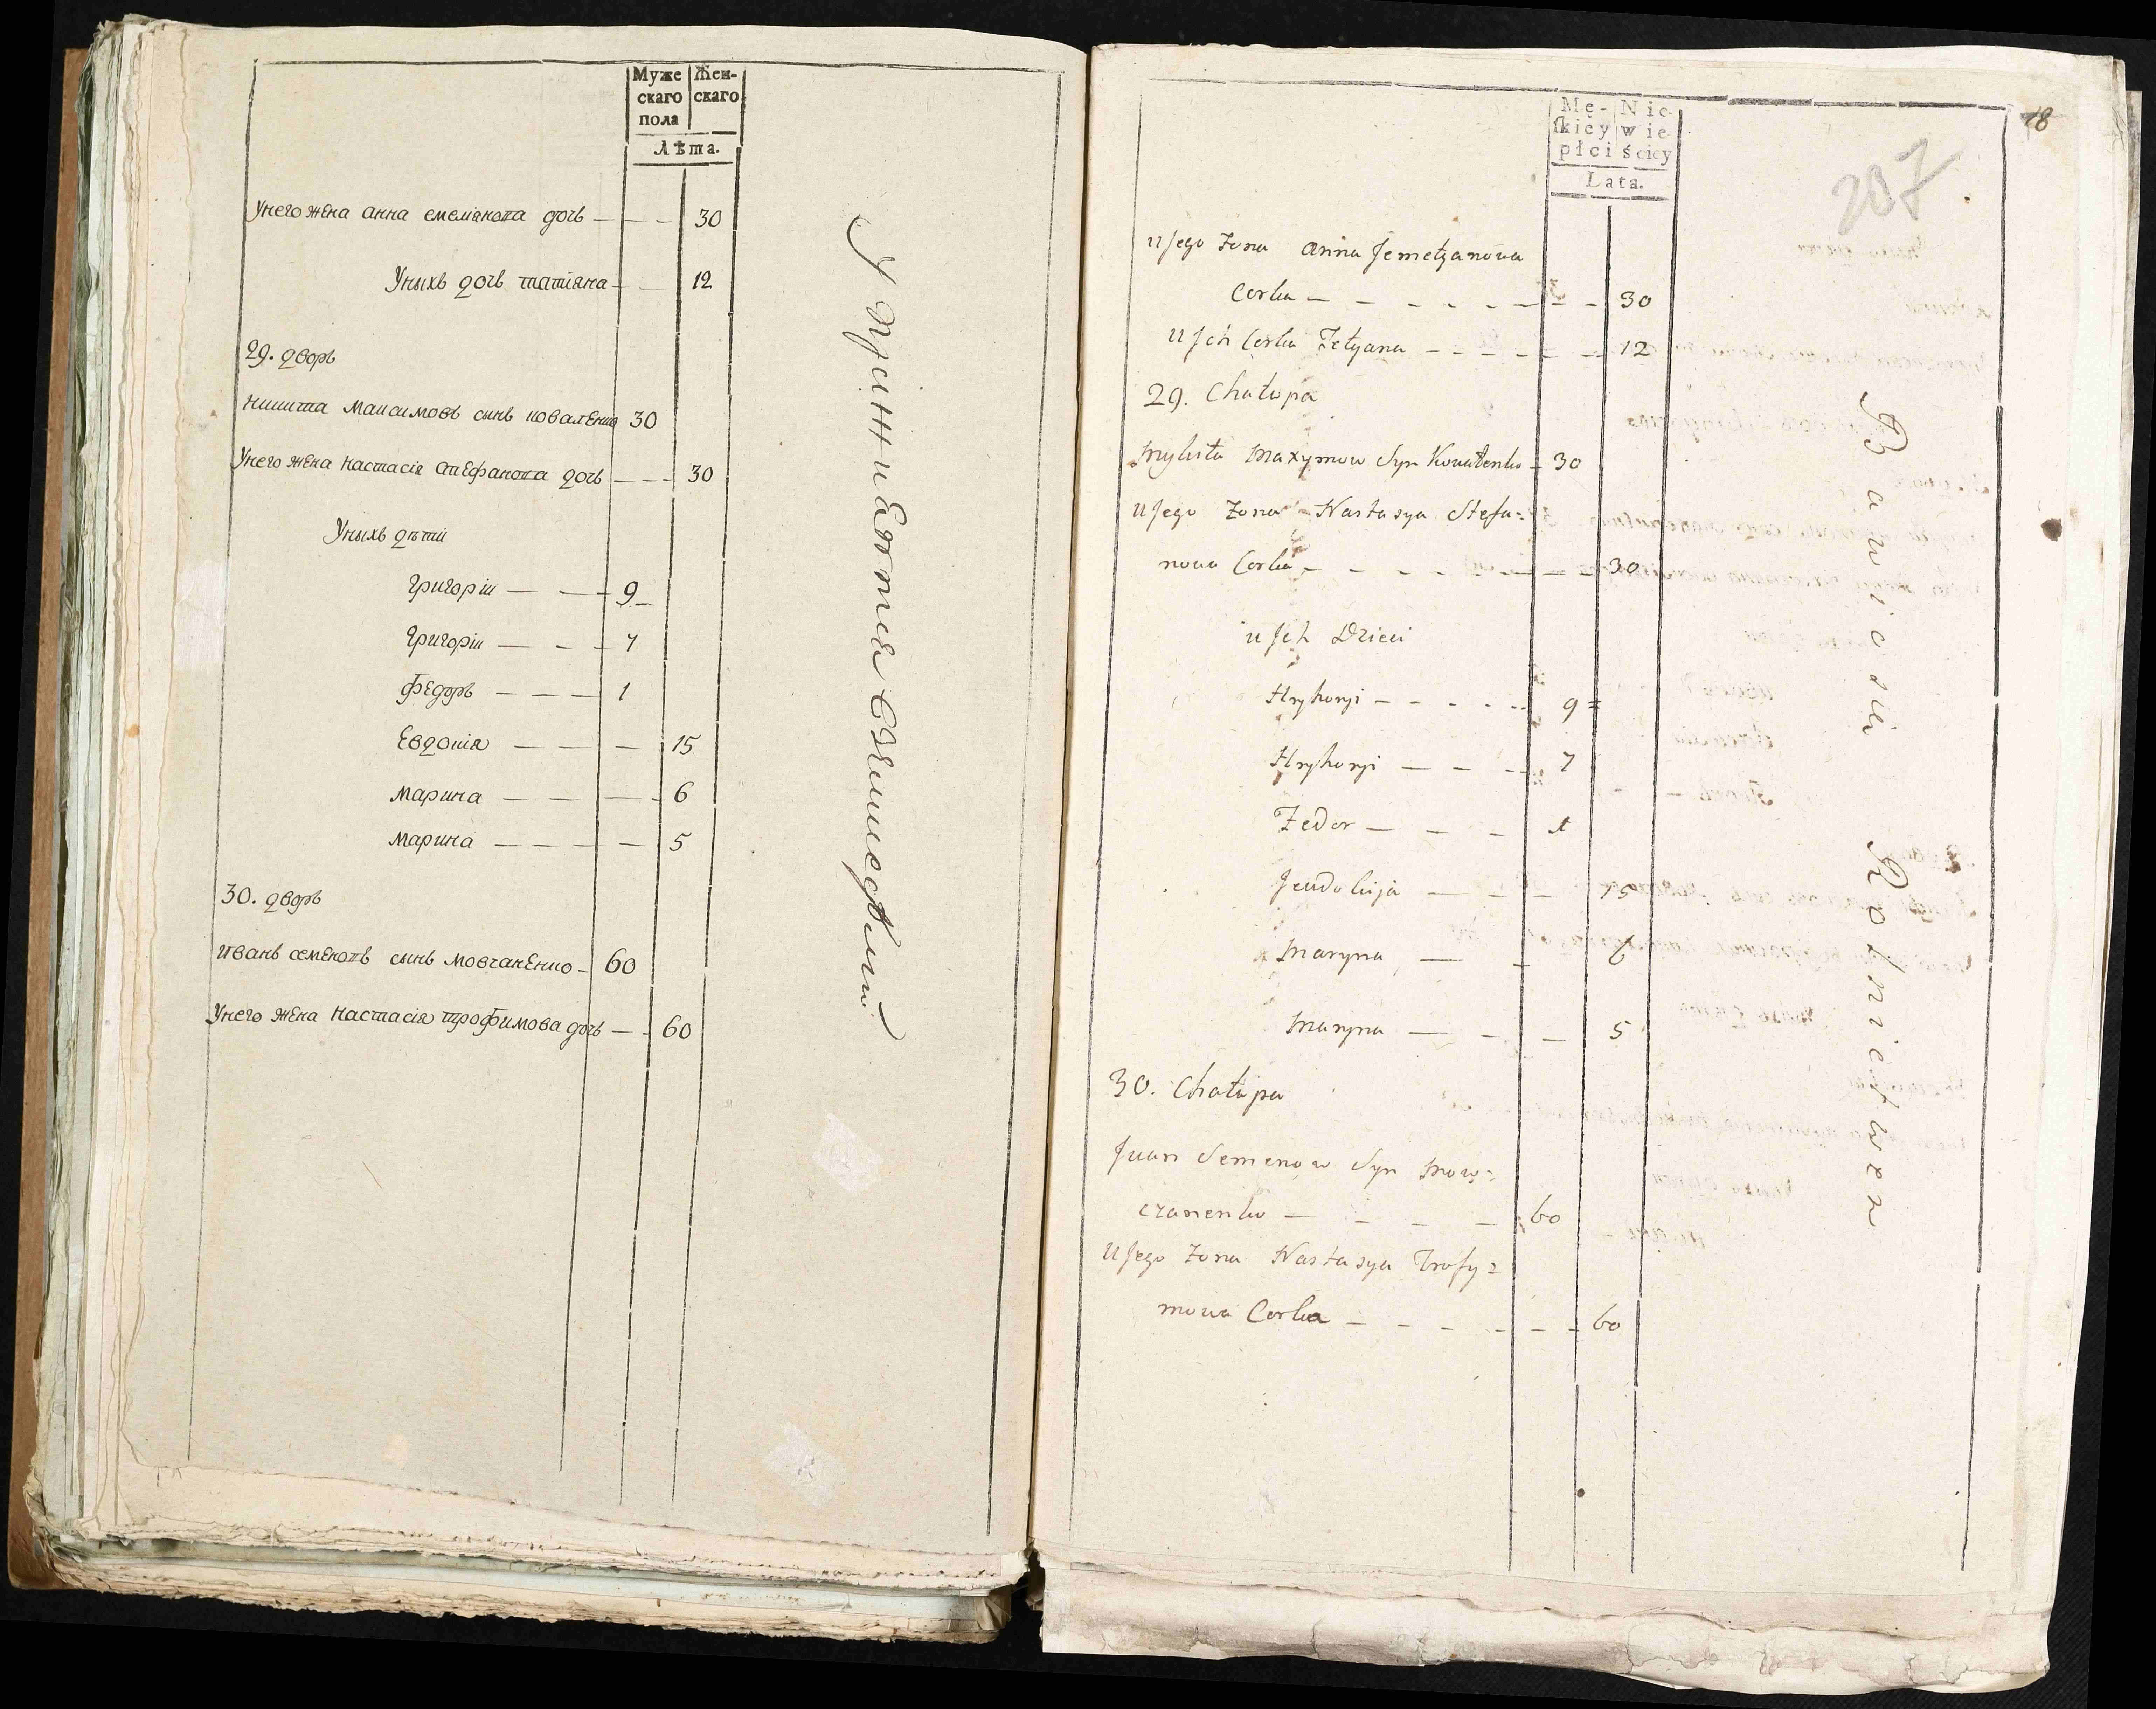 Муже Жен-
скаго скаго
пола
Лѣта.
Унего жена анна емелянова дочь — — — 30
Уныхъ дочь татіяна — — 12
29. дворъ
никита максимовъ сынъ коваленко 30
Унего жена настасія стефанова дочь — — — 30
Уныхъ дѣти
григоріи — — — 9
григоріи — — — 7
федоръ — — — 1
Евдокія — — — 15
марина — — — — 6
марина — — — — — 5
30. дворъ
иванъ семеновъ сынъ мовчаненко — 60
Унего жена настасія трофимова дочь — — 60
Упражняются вземледѣліи
18
207
Mę- Nie-
ſkiey wie
płci ściey
Lata.
u Jego Zona Anna Jemelzanowa
Corka — — — — — — — — 30
u Jch Corka Tetyana — — — — — — 12
29. Chałupa
Mykita Maxymow Syn Kowalenko — 30
u Jego Zona Nastasya Stefa=
nowa Corka — — — — — — — 30
u Jch Dzieci
Hryhoryi — — — — — 9
Hryhoryi — — — — 7
Fedor — — — 1
Jeudokija — — — 15
Maryna — — 6
Maryna — — — 5
30. Chałupa
Jwan Semenow Syn Mow=
czanenko — — — — — 60
u Jego Zona Nastasya Trofy=
mowa Corka — — — — — — 60
Bawią się Rolnictwem